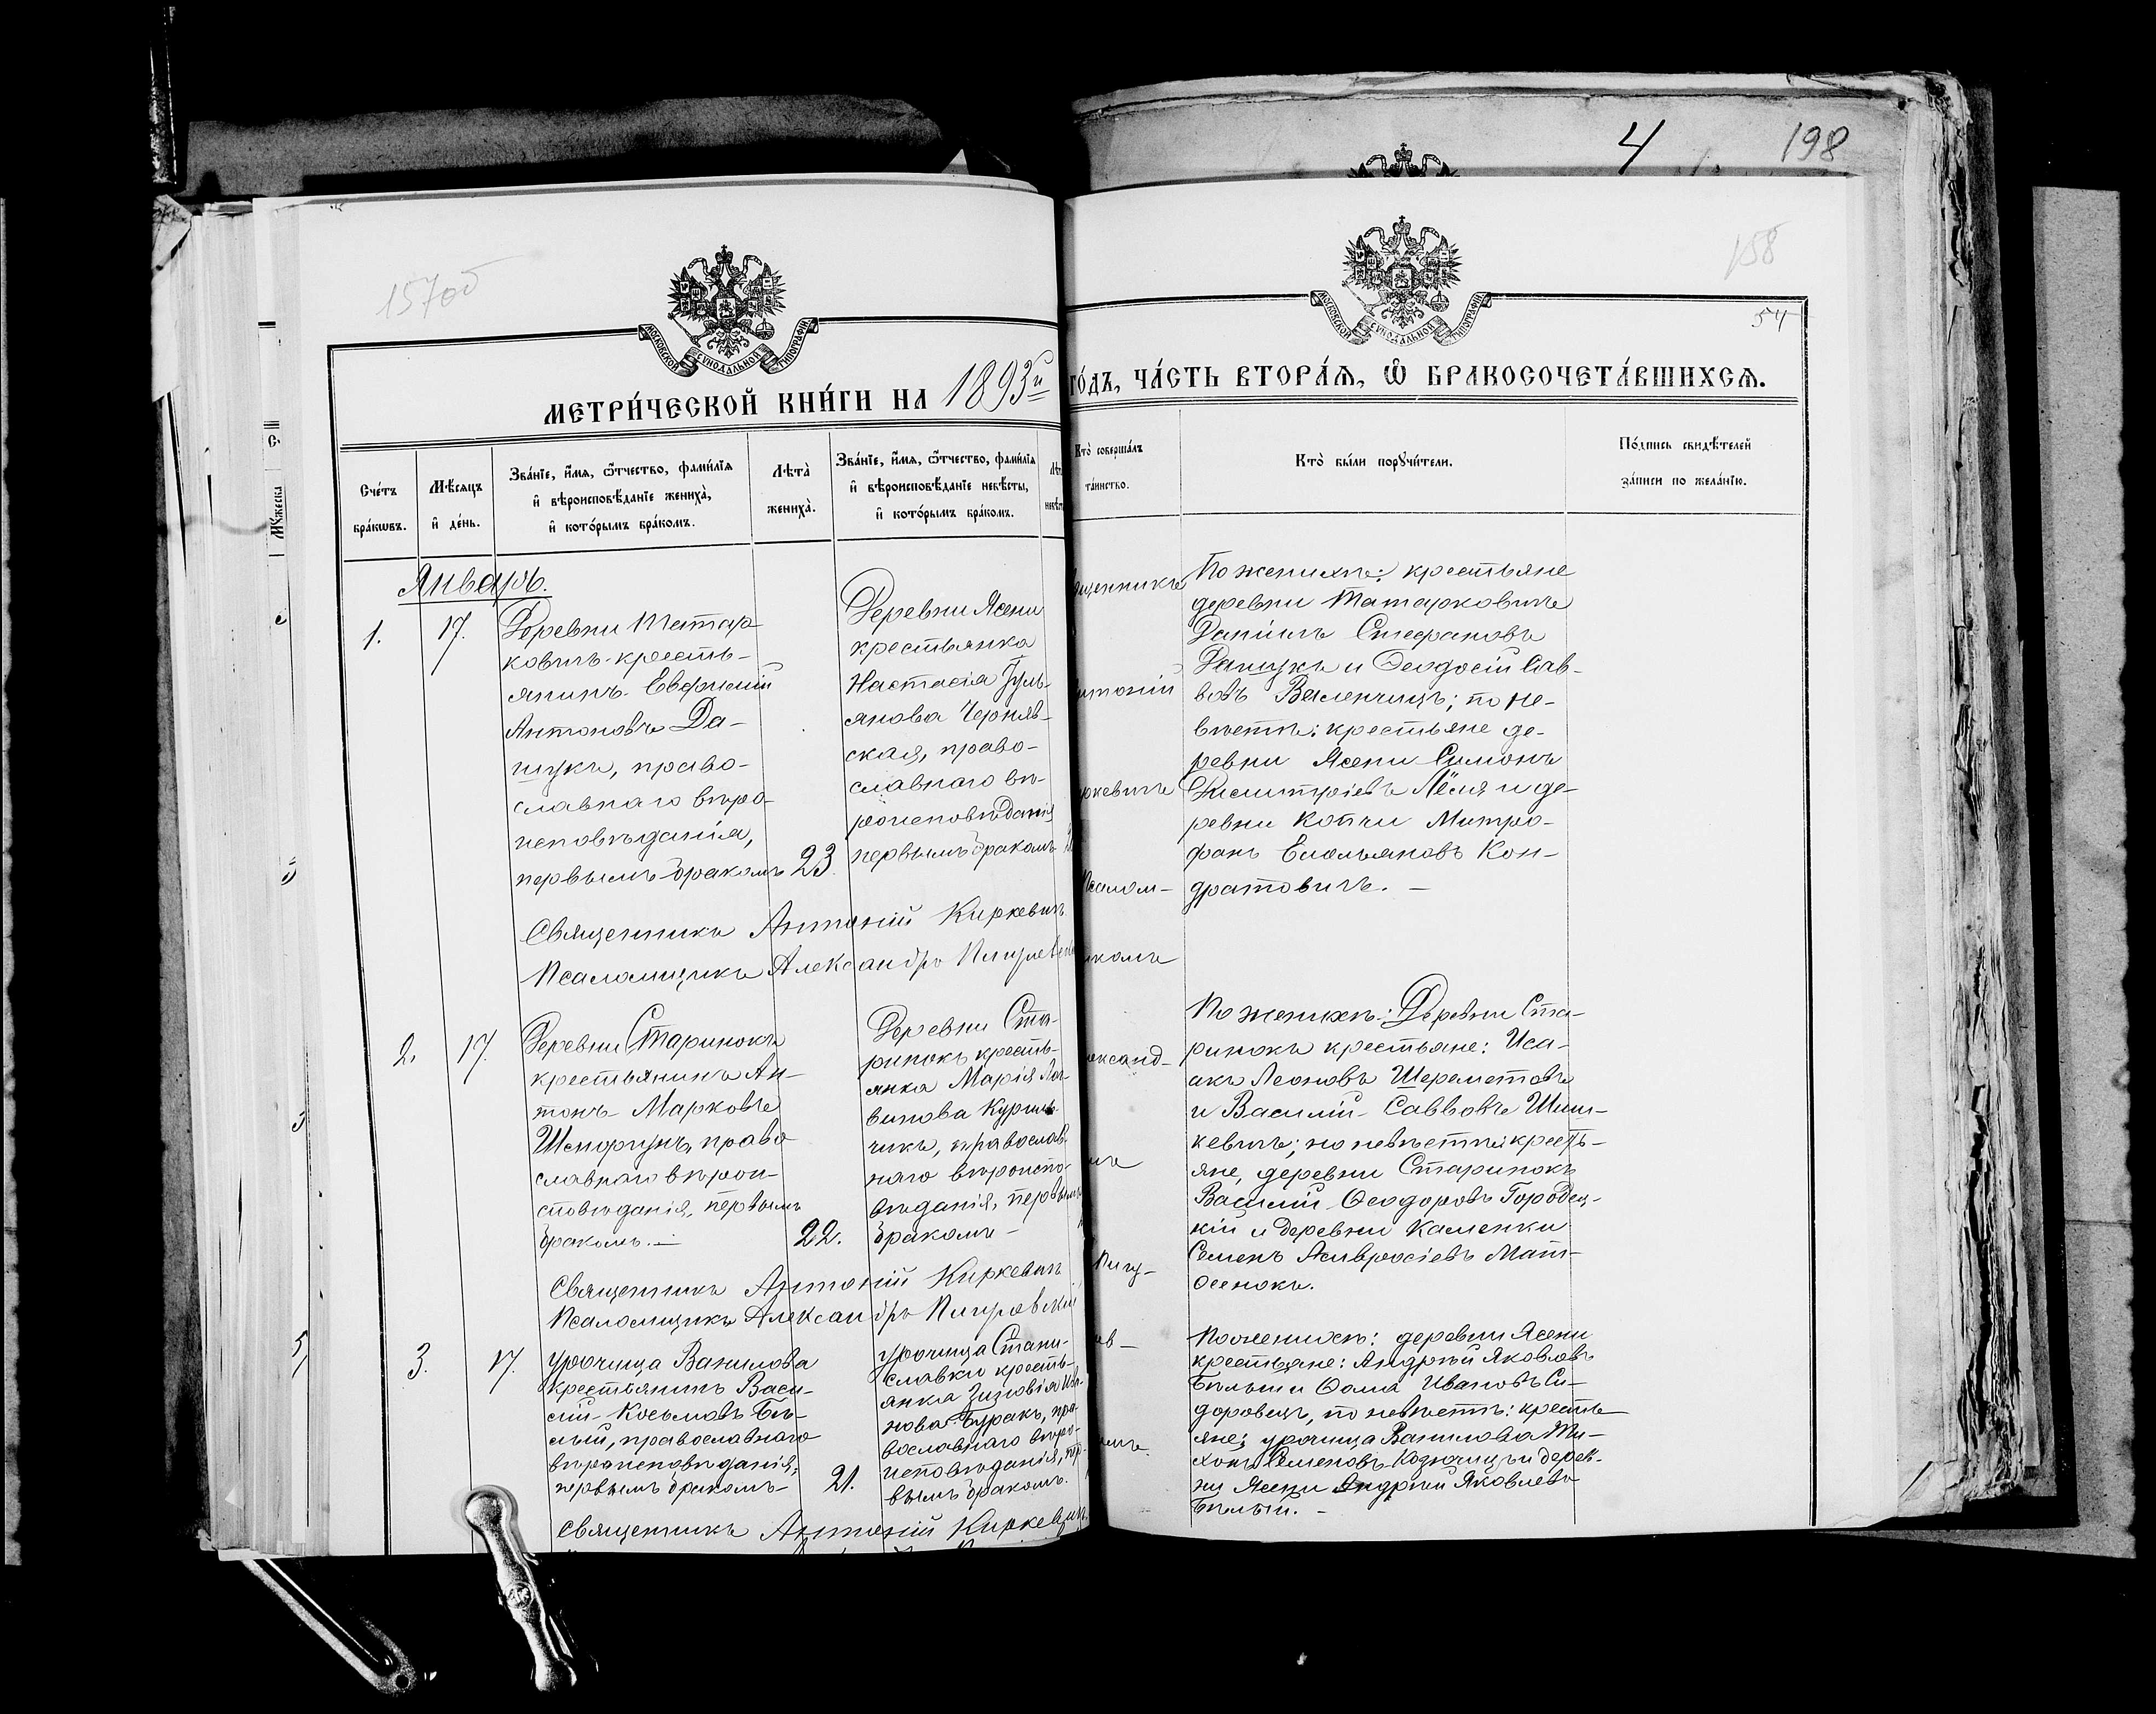 4 198
157об
158
54
МОСКОВСКОЙ СУНОДАЛЬНОЙ ТИПОГРАФІИ
МОСКОВСКОЙ СУНОДАЛЬНОЙ ТИПОГРАФІИ
МЕТРИ́ЧЕСКОЙ КНИ́ГИ НА 1893й
ГО́ДЪ, ЧА́СТЬ ВТОРА́Ѧ, Ѽ БРАКОСОЧЕТА́ВШИХСѦ.
Сче́тъ
бра́кѡвъ.
Мѣ́сѧцъ
и҆ де́нь.
Зва́нїе, и҆́мѧ, ѻ҆́тчество, фами́лїѧ
и҆ вѣроисповѣ́данїе жениха̀,
и҆ кото́рымъ бра́комъ.
Лѣта̀
жениха̀.
Зва́нїе, и҆́мѧ, ѻ҆́тчество, фами́лїѧ
и҆ вѣроисповѣ́данїе невѣ́сты,
и҆ кото́рымъ бра́комъ.
Кто̀ соверша́лъ
та́инство.
Кто̀ бы́ли порꙋчи́тели.
По́дпись свидѣ́телей
за́писи по жела́нїю.
Январь.
1.
17.
Деревни Татар
ковичъ кресть-
янинъ Евфимій
Антоновъ Да-
шукъ, право-
славнаго веро-
исповѣданія,
первымъ бракомъ
23.
Деревни Ясени
крестьянка
Настасія Іуль-
янова Черняв-
ская, право-
славнаго вѣ-
роисповѣданія
первымъ бракомъ
Священникъ Антоній Киркевичъ
Псаломщикъ Александръ
щенникъ
тоній
ркевичъ
Псалом-
По женихѣ: крестьяне
деревни Татарковичъ
Даніилъ Стефановъ
Дашукъ и Ѳеодосій Сав-
вовъ Валенчицъ; по не-
вѣстѣ: крестьяне де-
ревни Ясени Симонъ
Димитріевъ и де-
ревни Копчи Митро-
фанъ Емельяновъ Кон-
дратовичъ. —
2.
17.
Деревни Старинокъ
крестьянинъ Ан-
тонъ Марковъ
право
славнаго вѣрои-
сповѣданія, первымъ
бракомъ. —
22.
Деревни Ста-
ринокъ кресть-
янка Марія Лог-
винова Куриль-
чикъ, православ-
наго вѣроиспо-
вѣданія, первымъ
бракомъ —
Священникъ Антоній Киркевичъ
Псаломщикъ Александръ
ександ-
По женихѣ: Деревни Ста-
ринокъ крестьяне: Иса-
акъ Леоновъ Шереметовъ
и Василій Саввовъ Шиш-
кевичъ; по невѣстѣ: кресть-
яне, деревни Старинокъ
Василій Ѳеодоровъ Городец-
кій и деревни Каменки
Семенъ Амвросіевъ Мат-
осенокъ.
3.
17.
Урочища Ванилова
крестьянинъ Васи-
лій Косьмовъ Бѣ-
лый, православнаго
вѣроисповѣданія,
первымъ бракомъ —
21.
Урочища Стани-
славки кресть-
янка Зиновія Ива-
нова Буракъ, пра-
вославнаго вѣро-
исповѣданія, пер-
вымъ бракомъ.
Священникъ Антоній Киркевичъ
По женихѣ: деревни Ясени
крестьяне: Андрей Яковлевъ
Бѣлый и Ѳома Ивановъ Си-
доровецъ, по невѣстѣ: кресть-
яне: урочища Ванилова Ти-
хонъ Семеновъ и дерев-
ни Ясени Андрей Яковлевъ
Бѣлый. —